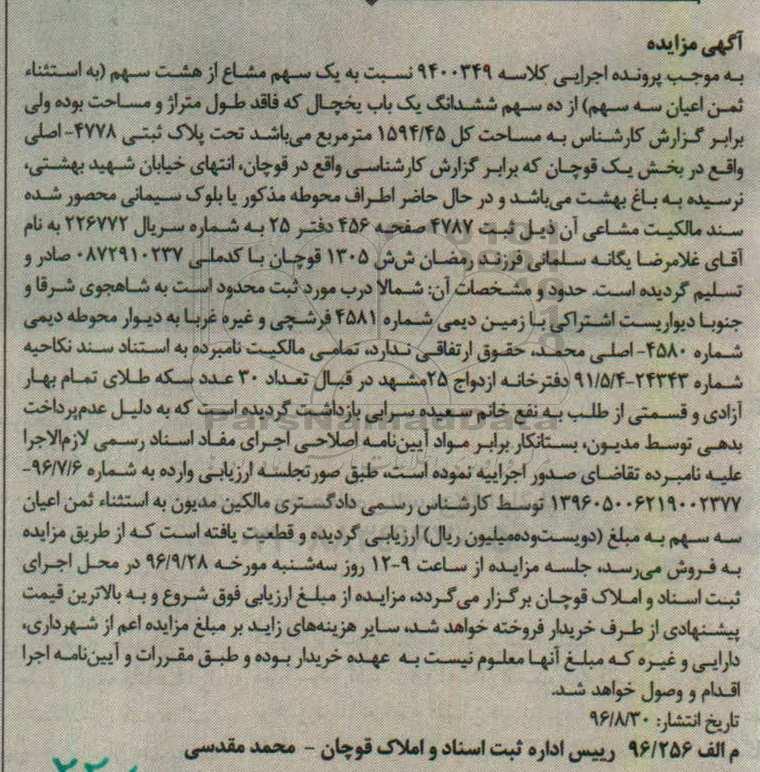 آگهی مزایده
به موجب پرونده اجرایی کلاسه ۹۴۰۰۳۴۹ نسبت به یک سهم مشاع از هشت سهم (به استثناء
ثمن اعیان سه سهم) از ده سهم ششدانگ یک باب یخچال که فاقد طول متراژ و مساحت بوده ولی
برابر گزارش کارشناس به مساحت کل ۱۵۹۴/۴۵ مترمربع می‌باشد تحت پلاک ثبتی ۴۷۷۸- اصلی
واقع در بخش یک قوچان که برابر گزارش کارشناسی واقع در قوچان، انتهای خیابان شهید بهشتی،
نرسیده به باغ بهشت می‌باشد و در حال حاضر اطراف محوطه مذکور با بلوک سیمانی محصور شده
سند مالکیت مشاعی آن ذیل ثبت ۴۷۸۷ صفحه ۴۵۶ دفتر ۲۵ به شماره سریال ۲۲۶۷۷۲ به نام
آقای غلامرضا یگانه سلمانی فرزند رمضان ش‌ش ۱۳۰۵ قوچان با کدملی ۰۸۷۲۹۱۰۲۳۷ صادر و
تسلیم گردیده است. حدود و مشخصات آن: شمالا درب مورد ثبت محدود است به شاهجوی شرقا و
جنوبا دیواریست اشتراکی با زمین دیمی شماره ۴۵۸۱ فرشچی و غیره غربا به دیوار محوطه دیمی
شماره ۴۵۸۰- اصلی محمد، حقوق ارتفاقی ندارد، تمامی مالکیت نامبرده به استناد سند نکاحیه
شماره ۲۴۳۴۳-۹۱/۵/۴ دفترخانه ازدواج ۲۵مشهد در قبال تعداد ۳۰ عدد سکه طلای تمام بهار
آزادی و قسمتی از طلب به نفع خانم سعیده سرابی بازداشت گردیده است که به دلیل عدم‌پرداخت
بدهی توسط مدیون، بستانکار برابر مواد آیین‌نامه اصلاحی اجرای مفاد اسناد رسمی لازم‌الاجرا
علیه نامبرده تقاضای صدور اجراییه نموده است، طبق صورتجلسه ارزیابی وارده به شماره ۹۶/۷/۶-
۱۳۹۶۰۵۰۰۶۲۱۹۰۰۲۳۷۷ توسط کارشناس رسمی دادگستری مالکین مدیون به استثناء ثمن اعیان
سه سهم به مبلغ (دویست‌وده‌میلیون ریال) ارزیابی گردیده و قطعیت یافته است که از طریق مزایده
به فروش می‌رسد، جلسه مزایده از ساعت ۹-۱۲ روز سه‌شنبه مورخه ۹۶/۹/۲۸ در محل اجرای
ثبت اسناد و املاک قوچان برگزار می‌گردد، مزایده از مبلغ ارزیابی فوق شروع و به بالاترین قیمت
پیشنهادی از طرف خریدار فروخته خواهد شد، سایر هزینه‌های زاید بر مبلغ مزایده اعم از شهرداری،
دارایی و غیره که مبلغ آنها معلوم نیست به عهده خریدار بوده و طبق مقررات و آیین‌نامه اجرا
اقدام و وصول خواهد شد.
تاریخ انتشار: ۹۶/۸/۳۰
م الف ۹۶/۲۵۶ رییس اداره ثبت اسناد و املاک قوچان - محمد مقدسی
ParsNamadData